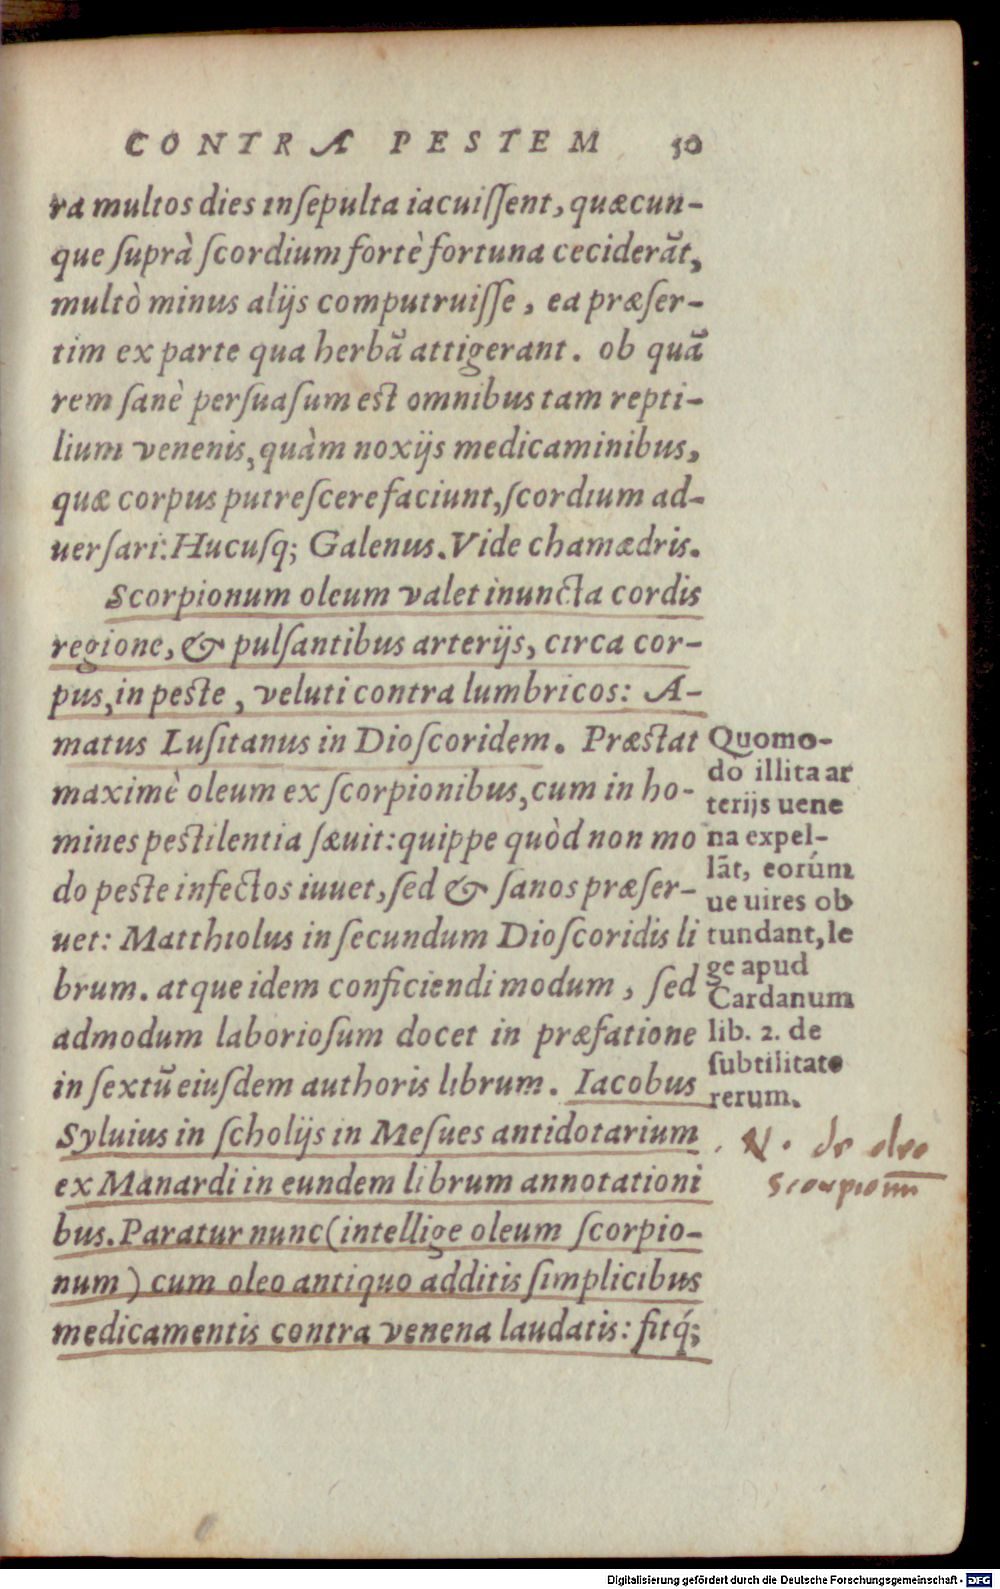 CONTRA PESTEM 50
ra multos dies inſepulta iacuiſſent, quæcun-
que ſuprà ſcordium fortè fortuna ceciderãt,
multò minus alijs computruiſſe, ea præſer-
tim ex parte qua herbã attigerant. ob quã
rem ſanè perſuaſum est omnibus tam repti-
lium venenis, quàm noxijs medicaminibus,
quæ corpus putreſcere faciunt, ſcordium ad-
uerſari: Hucuſq; Galenus. Vide chamædris.
Scorpionum oleum valet inuncta cordis
regione, & pulſantibus arterijs, circa cor-
pus, in peste, veluti contra lumbricos: A-
matus Luſitanus in Dioſcoridem. Præstat
maximè oleum ex ſcorpionibus, cum in ho-
mines pestilentia ſæuit: quippe quòd non mo
do peste infectos iuuet, ſed & ſanos præſer-
uet: Matthiolus in ſecundum Dioſcoridis li
brum. atque idem conficiendi modum, ſed
admodum laborioſum docet in præfatione
in ſextũ eiuſdem authoris librum. Iacobus
Syluius in ſcholijs in Meſues antidotarium
ex Manardi in eundem librum annotationi
bus. Paratur nunc (intellige oleum ſcorpio-
num) cum oleo antiquo additis ſimplicibus
medicamentis contra venena laudatis: fitq́;
Quomo-
do illita ar
terijs uene
na expel-
lãt, eorúm
ue uires ob
tundant, le
ge apud
Cardanum
lib. 2. de
ſubtilitate
rerum.
N. de oleo
scorpionū
Digitalisierung gefördert durch die Deutsche Forschungsgemeinschaft - DFG